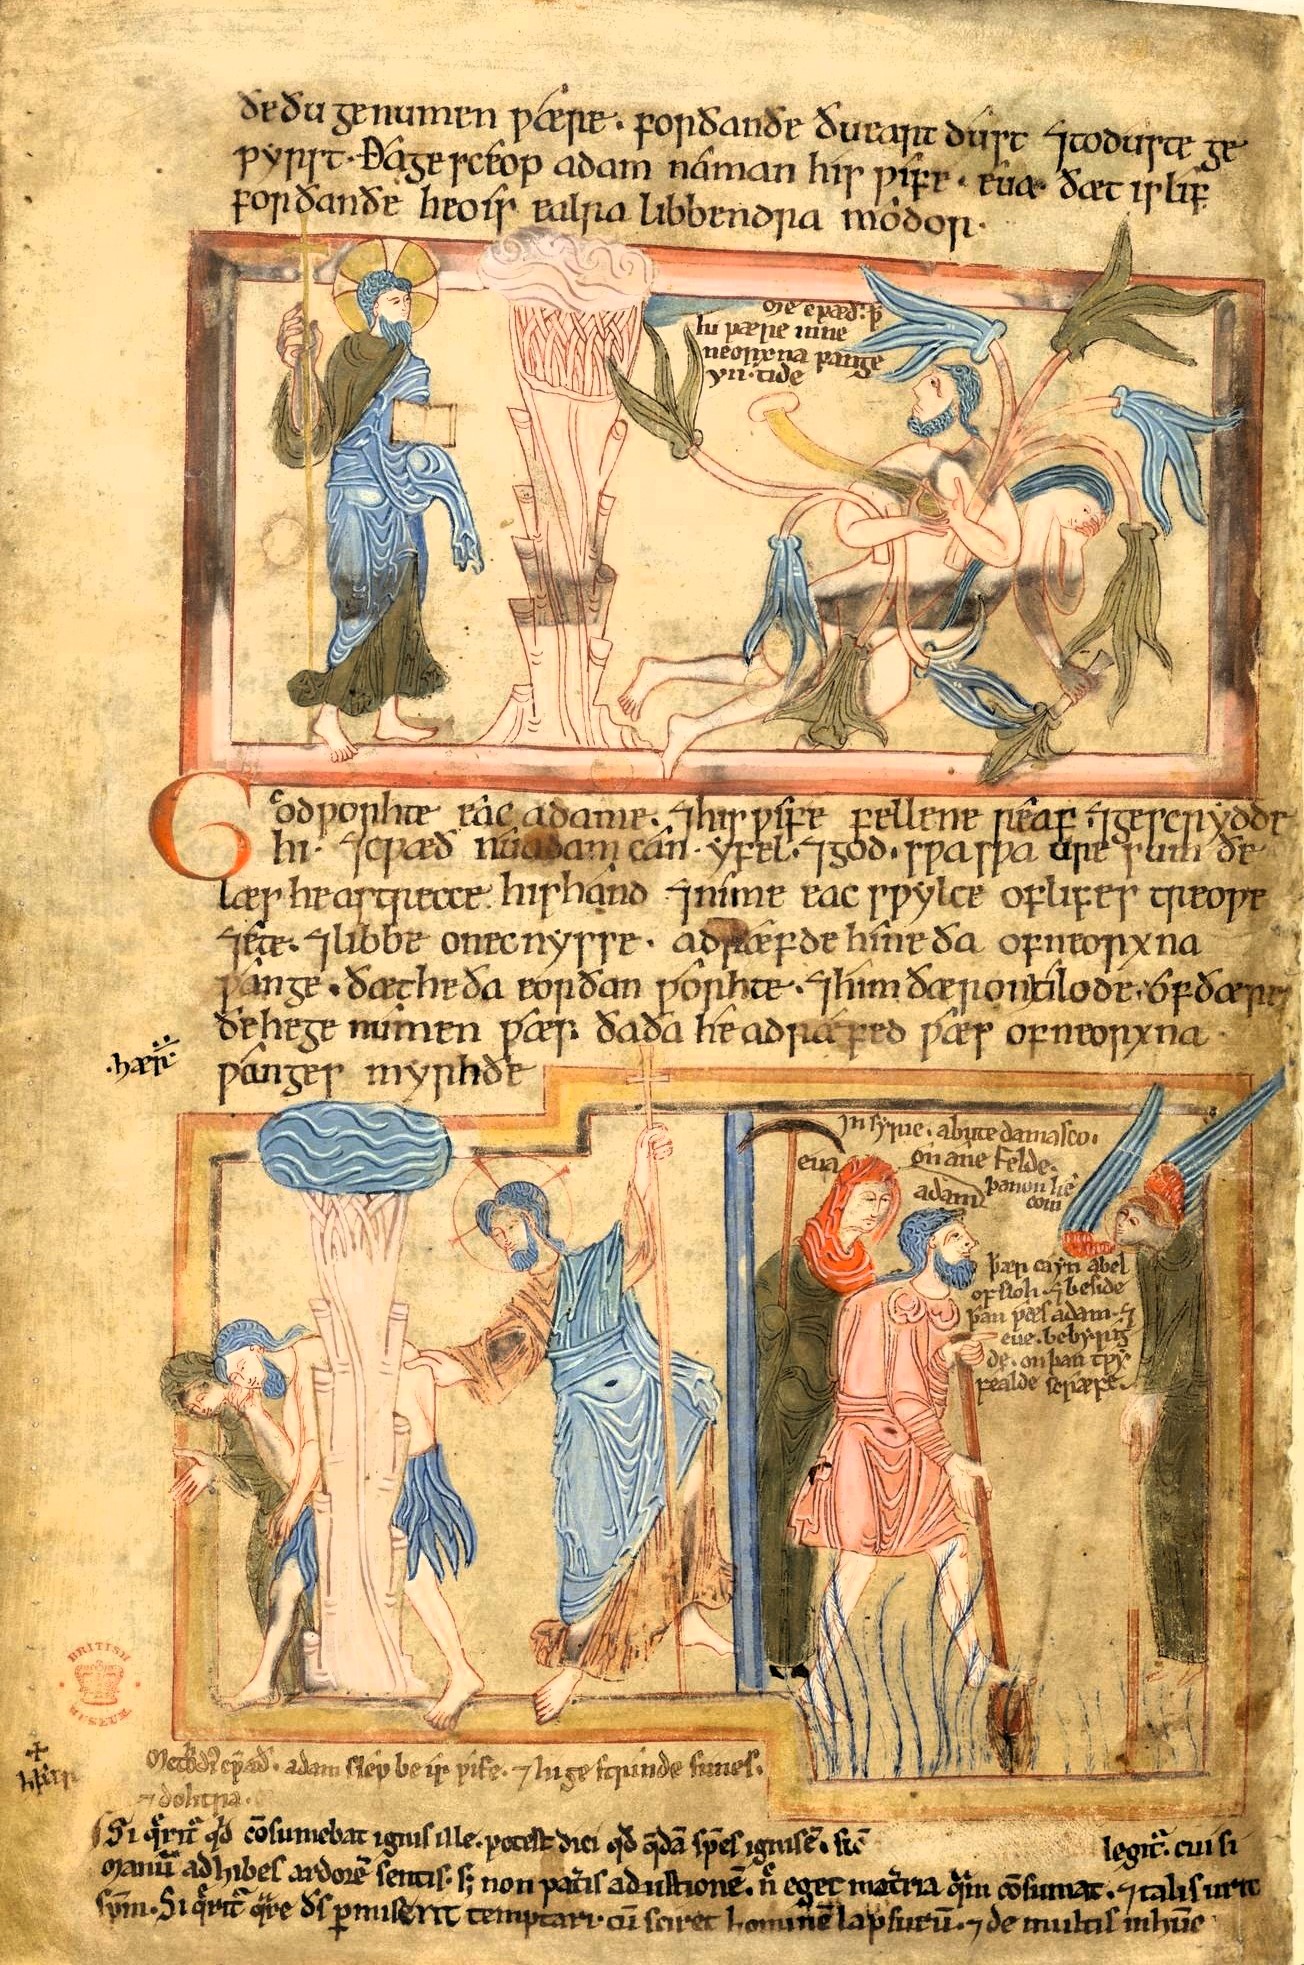 ðe ðu genumen wære. forðan ðe ðu eart dust ⁊ to duste ge
wyrst. Ða gesceop adam naman his wife. eua. ðæt is lif
forðan ðe heo is ealra libbendra modor.
hu wære inne
neorxna wange
yn. tide
God worhte eac adame. ⁊ his wife fellene reaf ⁊ gescrydde
hi. ⁊ cwæð nu adam can. yfel. ⁊ god. swa swa ure sum ðe
læs he astrecce his hand ⁊ nime eac swylce of lifes treowe
⁊ ete. ⁊ libbe on ecnysse. adræfde hine ða of neorxna
wange. ðæt he ða eorðan worhte. ⁊ him ðæron tilode. of ðære
ðe he genumen wæs. ða ða he adræfed wæs of neorxna
wanges myrhðe
In syrie. abute damasco.
eua
on ane felde.
adam
þanon he
com
þær cayn abel
ofsloh. ⁊ beside
þan wæs adam. ⁊
eue. bebyrig
de. on þan twy
fealde scræfe.
adam slep be is wife. ⁊ huge strinde sunes.
⁊ dohtra.
BRITISH
MUSEUM
Si q̄rit̄ qd̄ cōsumebat ignis ille. potest dici qd̄ q̄dā sp̄es ignis ē. sic̄ legit̄. cui si
manū adhibes ardorē sentis. s; non pat̄is adustionē. n̄ eget mat̄ria q̄m cōsumat. ⁊ talis urit
sp̄m. Si q̄rit̄ q̄re d̄s p̄miserit temptari. cū sciret hominē lapsurū. ⁊ de multis in hūc